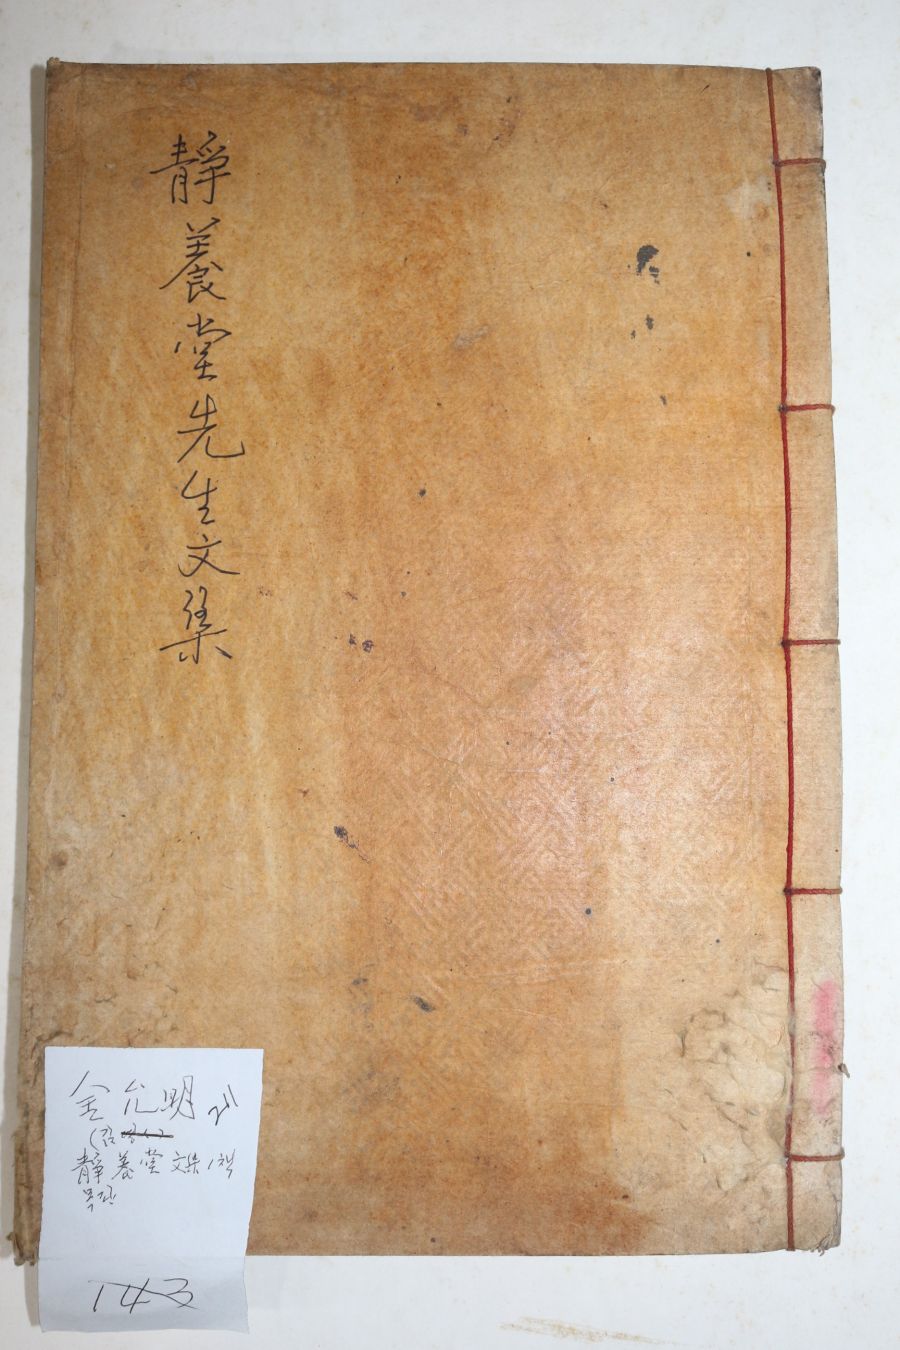 靜養堂先生文集
金允明
靜養堂文集1책
목판
143